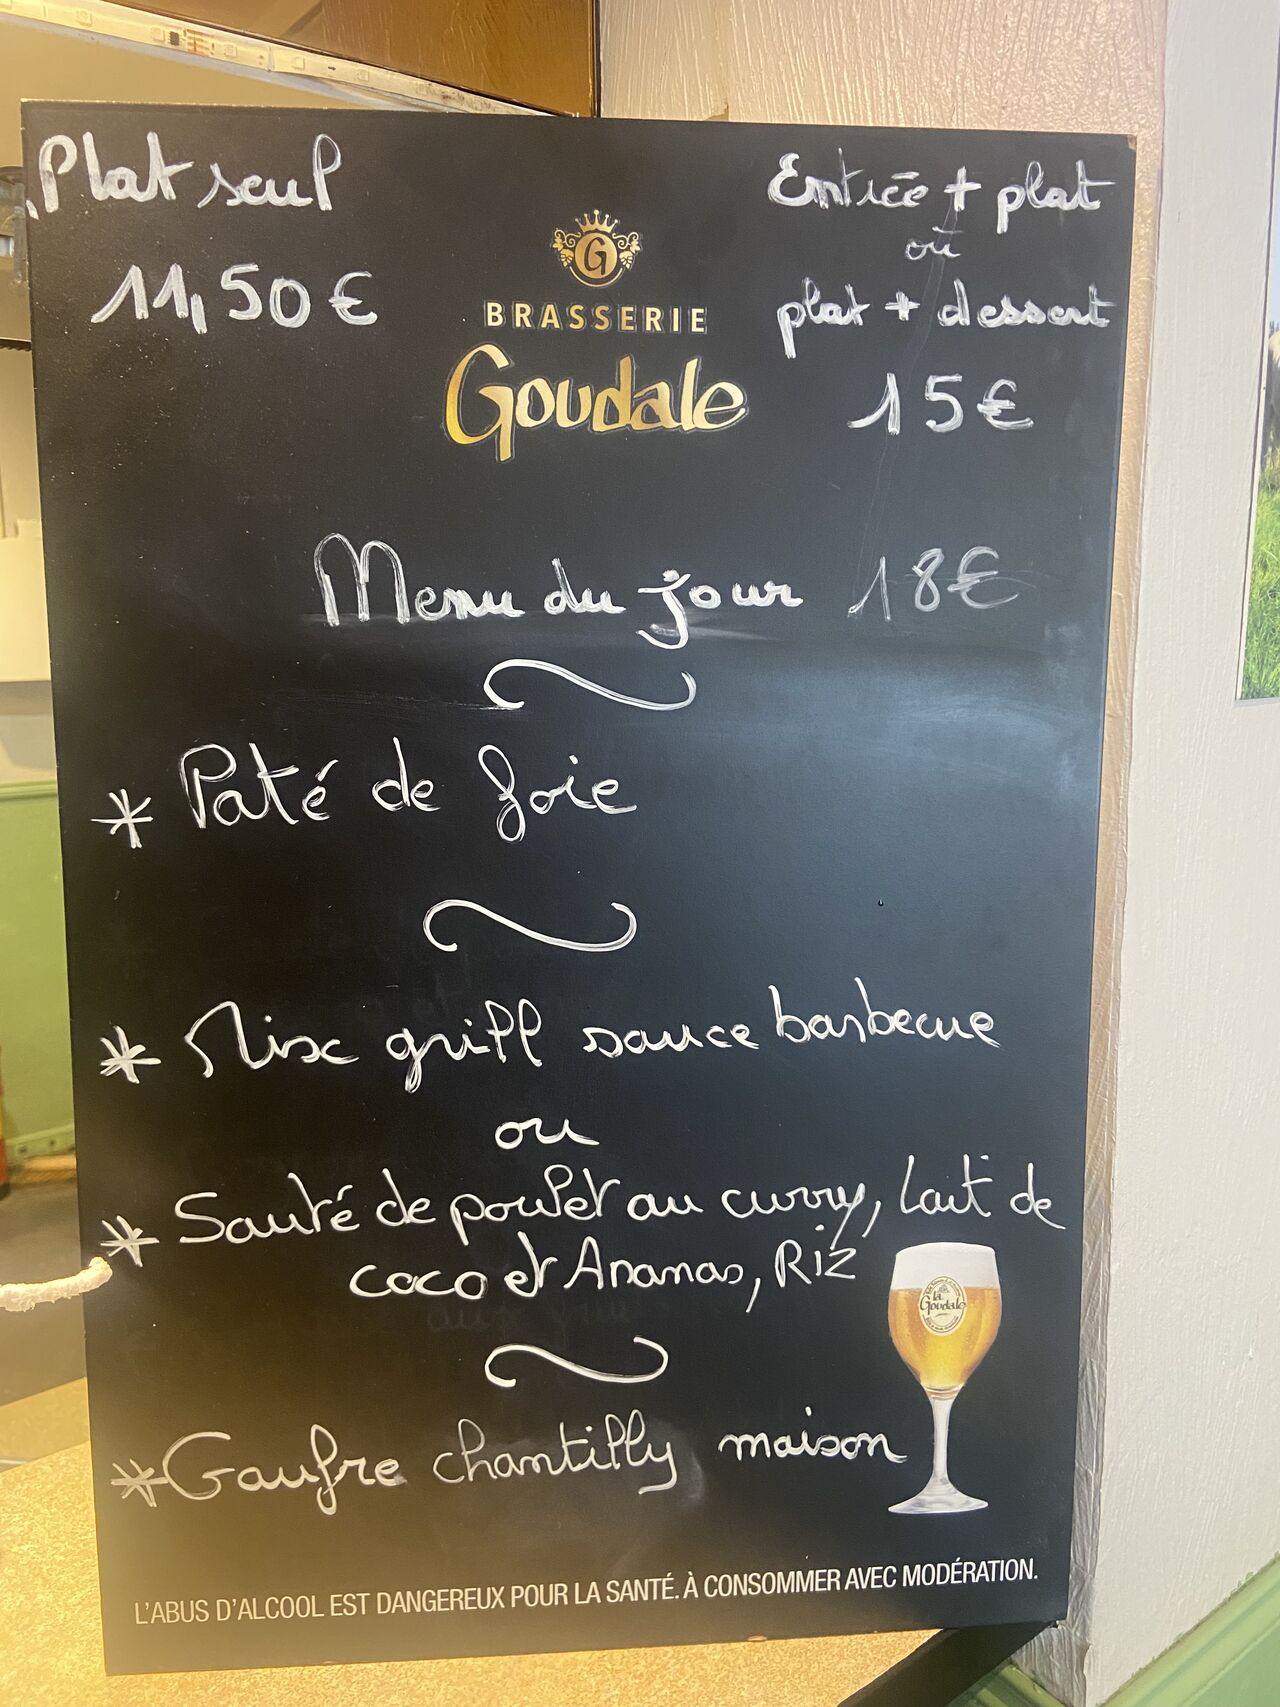 Plat seul
11,50 €
Entrée + plat
ou
plat + dessert
15 €
G
BRASSERIE
Goudale
Menu du jour 18 €
* Paté de foie
* Mix grill sauce barbecue
ou
* Sauté de poulet au curry, Lait de
coco et Ananas, Riz
la
Goudale
* Gaufre chantilly maison
L'ABUS D'ALCOOL EST DANGEREUX POUR LA SANTÉ. À CONSOMMER AVEC MODÉRATION.